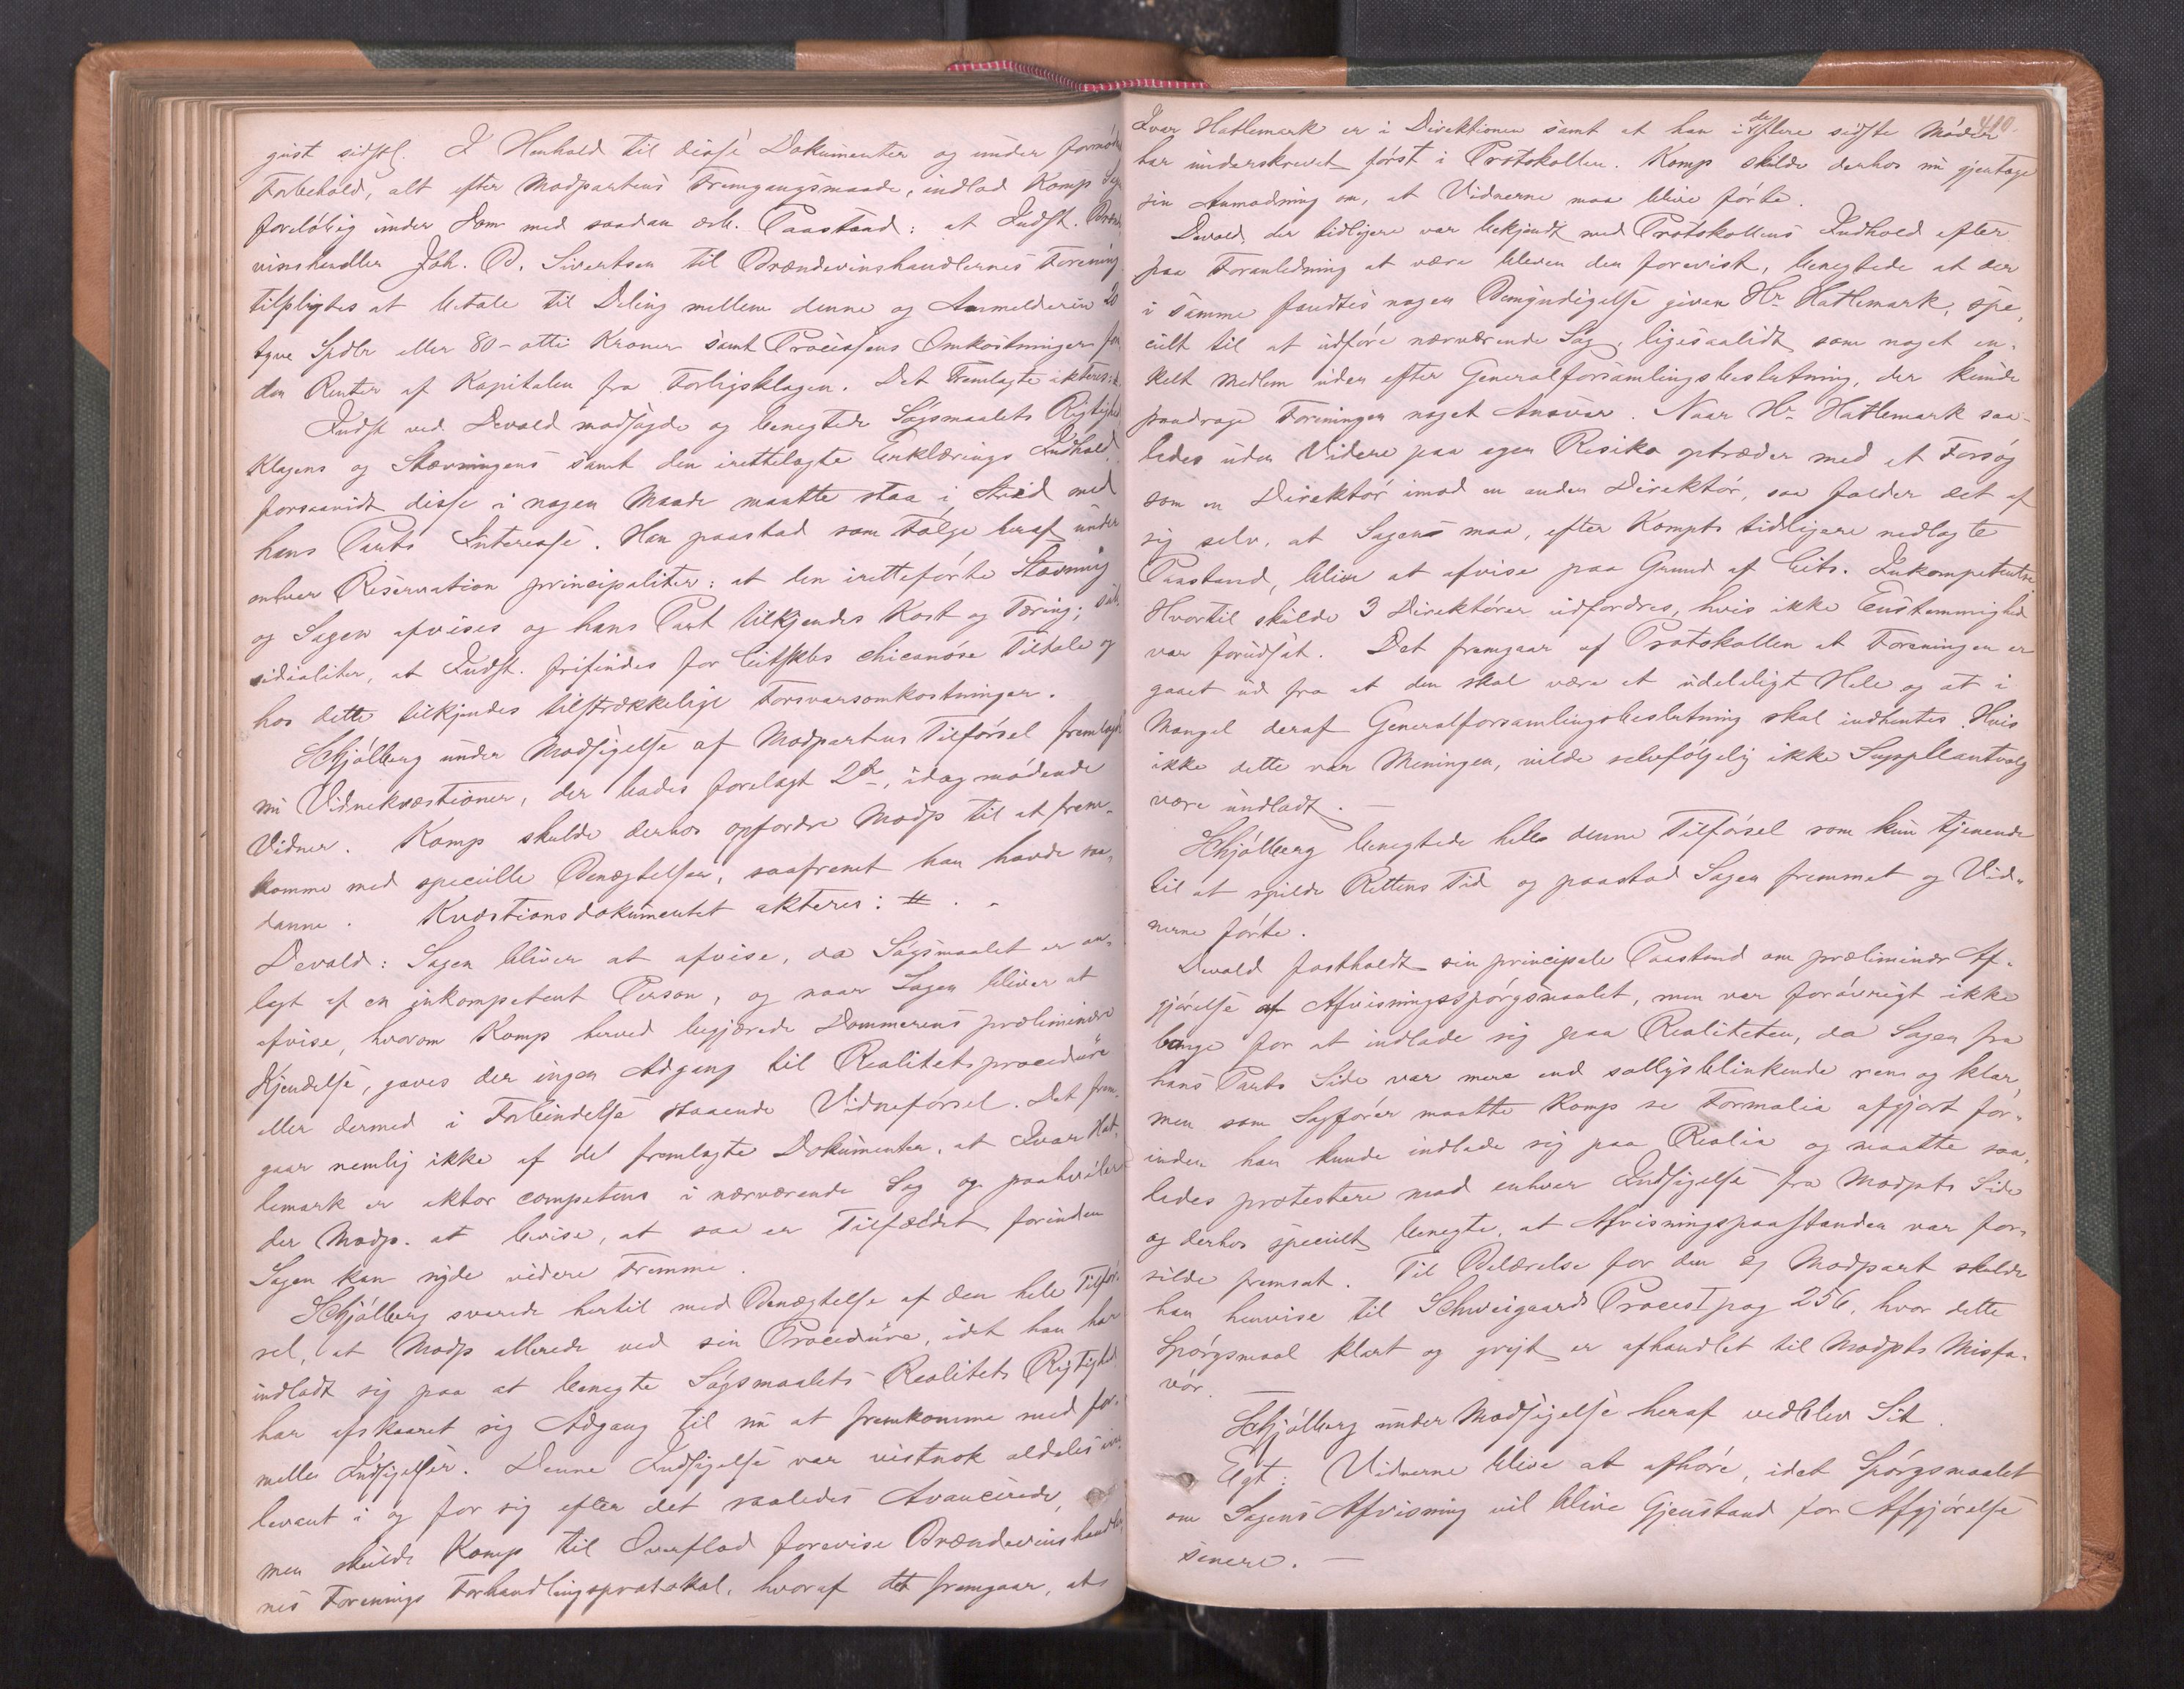 gust sidstl. I Henhold til disse Dokumenter og under fornød
Forbehold, alt efter Modpartens Fremgangsmaade, indlod Komp Sag
foreløbig under Dom med saadan ærb. Paastand: at Indst. Brænde
vinshandler Joh. P. Sivertsen til Brændevinshandlernes Forening
tilpligtes at betale til Deling mellem denne og Anmelderen 20
tyve Spdlr eller 80 - otti Kroner samt Processens Omkostninger for
den Renter af Kapitalen fra Forligsklagen. Det Fremlagte akteres:
Indst ved Devold modsagde og benegtede Søgsmaalets Rigtighed
Klagens og Stævningens samt den irettelagte Erklærings Indhold,
forsaavidt disse i nogen Maade maatte staa i Strid med
hans Parts Interesse. Han paastod som Følge heraf under
enhver Reservation principaliter: at den iretteførte Stævning
og Sagen afvises og hans Part tilkjendes Kost og Tæring; sub
sidialiter, at Indst. frifindes for Citstkls chicanøse Tiltale og
hos dette tilkjendes tilstrækkelige Forsvarsomkostninger.
Schjølberg under Modsigelse af Modpartens Tilførsel fremlagde
nu Vidnekvæstioner, der bades forelagt 2de, idag mødende
Vidner. Komp skulde derhos opfordre Modp til at frem-
komme med specielle Benægtelser, saafremt han havde saa-
danne. Kvæstionsdokumentet akteres: #. -
Devold: Sagen bliver at afvise, da Søgsmaalet er an-
lagt af en inkompetent Person, og naar Sagen bliver at
afvise, hvorom Komp herved begjærede Dommerens præliminære
Kjendelse, gaves der ingen Adgang til Realitetsprocedure
eller dermed i Forbindelse staaende Vidneførsel. Det frem-
gaar nemlig ikke af det fremlagte Dokumenter, at Ivar Hat-
lemark er aktor competens i nærværende Sag og paahviler
der Modp. at bevise, at saa er Tilfældet forinden
Sagen kan nyde videre Fremme.
Schjølberg svarede hertil med Benægtelse af den hele Tilfør-
sel, at Modp allerede ved sin Procedure, idet han har
indladt sig paa at benegte Søgsmaalets Realitets Rigtighed
har afskaaret sig Adgang til nu at fremkomme med for-
melle Indsigelser. Denne Indsigelse var vistnok aldeles irre
levant i og for sig efter det saaledes Avancerede,
men skulde Komp til Overflod forevise Brændevinshandler
nes Forenings Forhandlingsprotokol, hvoraf det fremgaar, at
410.
Ivar Hatlemark er i Direktionen samt at han i de flere sidste Møder
har underskrevet først i Protokollen. Komp skulde derhos nu gjentage
sin Anmodning om, at Vidnerne maa blive førte.
Devold, der tidligere var bekjendt med Protokollens Indhold efter
paa Foranledning at være bleven den forevist, benegtede at der
i samme fandtes nogen Bemyndigelse given Hr Hatlemark, spe-
cielt til at udføre nærværende Sag, ligesaalidt som noget en-
kelt Medlem uden efter Generalforsamlingsbeslutning, der kunde
paadrage Foreningen noget Ansvar. Naar Hr Hatlemark saa-
ledes uden Videre paa egen Risiko optræder med et Forsøg
som en Direktør imod en anden Direktør, saa falder det af
sig selv, at Sagens maa, efter Kompts tidligere nedlagte
Paastand, blive at afvise paa Grund af Cits. Inkompetentse
Hvortil skulde 3 Direktører udfordres, hvis ikke Eenstemmighed
var forudsat. Det fremgaar af Protokollen at Foreningen er
gaaet ud fra at den skal være et udeleligt Hele og at i
Mangel deraf Generalforsamlingsbeslutning skal indhentes. Hvis
ikke dette var Meningen, vilde selvfølgelig ikke Suppleantvalg
være undladt. -
Schjølberg benegtede hele denne Tilførsel som kun tjenende
til at spilde Rettens Tid og paastod Sagen fremmet og Vid-
nerne førte.
Devold fastholdt sin principale Paastand om præliminær Af-
gjørelse af Afvisningsspørgsmaalet, men var forøvrigt ikke
bange for at indlade sig paa Realiteten, da Sagen fra
hans Parts Side var mere end sollysblinkende ren og klar,
men som Sagfører maatte Komp se Formalia afgjort for-
inden han kunde indlade sig paa Realia og maatte saa-
ledes protestere mod enhver Indsigelse fra Modpts Side
og derhos specielt benegte, at Afvisningspaastanden var for-
silde fremsat. Til Belærelse for den Ej Modpart skulde
han henvise til Schweigaards Proces I pag 256, hvor dette
Spørgsmaal klart og greit er afhandlet til Modpts Misfa-
vør. -
Schjølberg under Modsigelse heraf vedblev Sit.
Egt: Vidnerne blive at afhøre, idet Spørgsmaalet
om Sagens Afvisning vil blive Gjenstand for Afgjørelse
senere. -